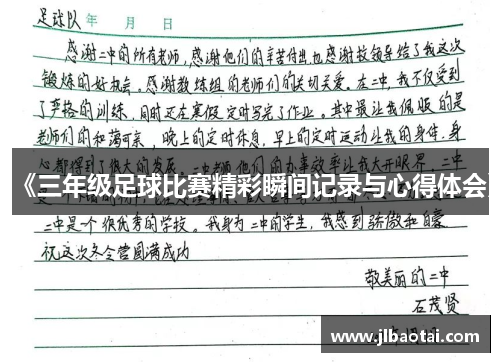 足球队 年 月 日
感谢二中的所有老师,感谢他们的辛苦付出,也感谢校领导给了我这次
锻炼的好机会。感谢教练组的老师们的关切关爱。在二中,我不仅受到
了严格的训练,同时还在寒假定时写完了作业。其中最让我佩服的是
老师们的和蔼可亲,晚上的定时休息,早上的定时运动让我的身体、身
心都得到了很大的发展
《三年级足球比赛精彩瞬间记录与心得体会
二中是一个很优秀的学校。我身为二中的学生,我感到骄傲和自豪
祝这次冬令营圆满成功
敬美丽的二中
石茂贤
www.jlbaotai.com